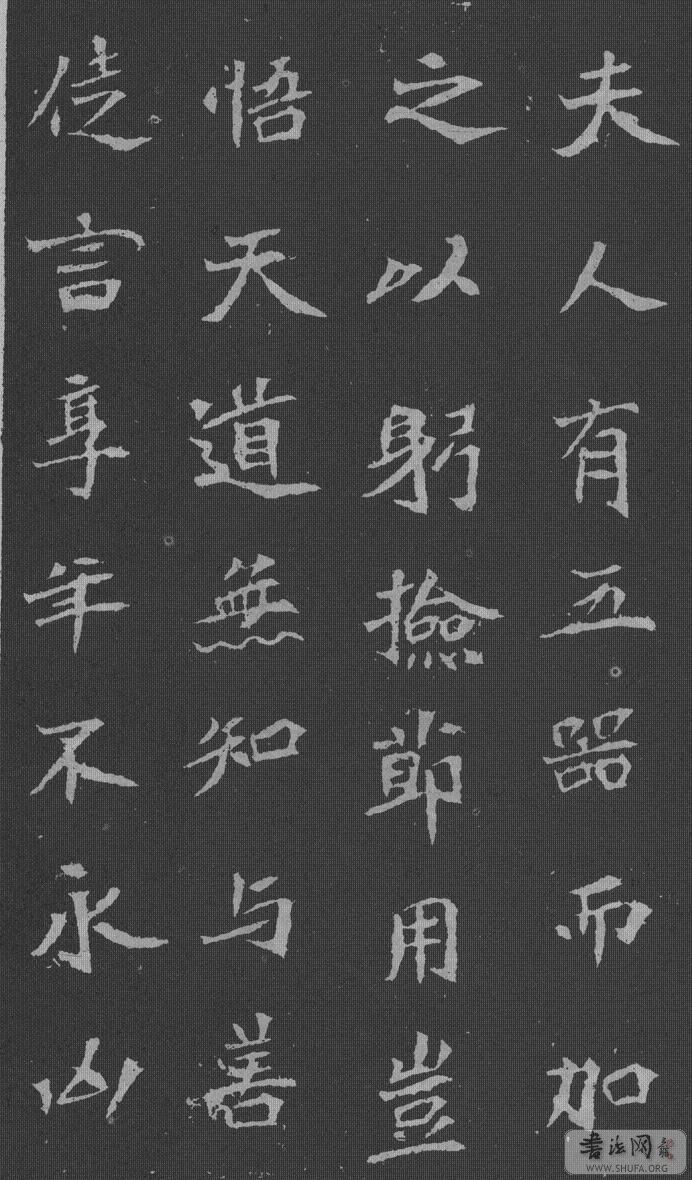 夫人有五器而加
之以躬撿節用豈
悟天道無知与善
徒言享年不永凶
書法网
WWW.SHUFA.ORG